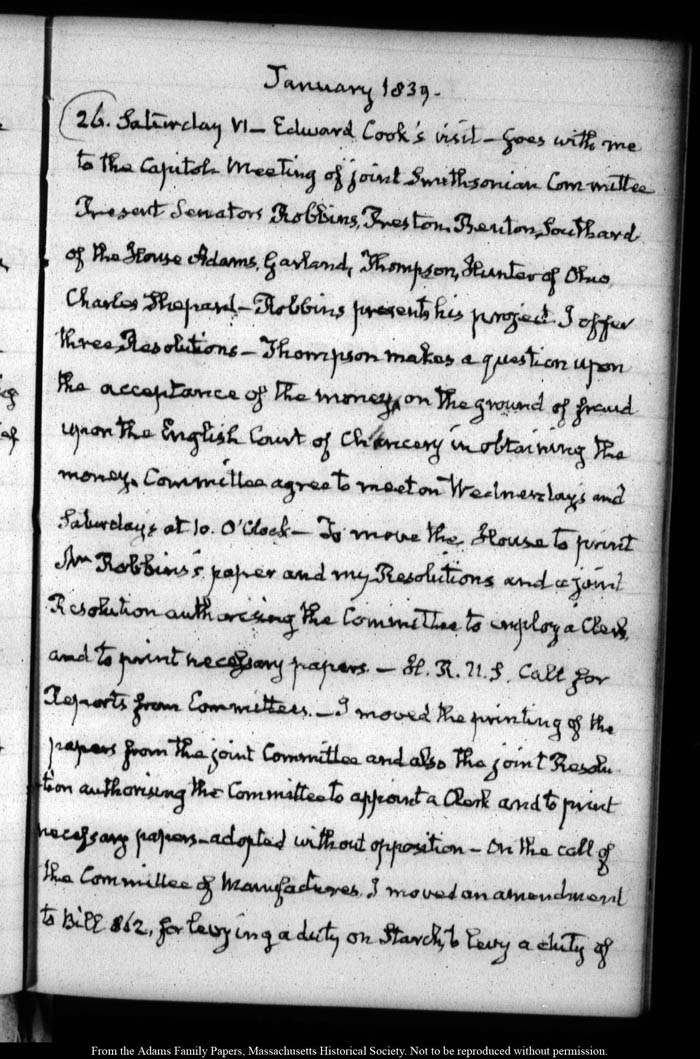 January 1839.
26. Saturday VI — Edward Cook's visit — goes with me
to the Capitol. Meeting of joint Smithsonian Committee
Present Senators Robbins, Preston, Benton, Southard
of the House Adams, Garland, Thompson, Hunter of Ohio,
Charles Shepard — Robbins presents his project. I offer
three Resolutions — Thompson makes a question upon
the acceptance of the money, on the ground of fraud
upon the English Court of Chancery in obtaining the
money. Committee agree to meet on Wednesdays and
Saturdays at 10. O'Clock — To move the House to print
Mr Robbins's paper and my Resolutions and a joint
Resolution authorising the Committee to employ a Clerk,
and to print necessary papers. — H. R. U. S. Call for
Reports from Committees. — I moved the printing of the
papers from the joint Committee and also the joint Resolu
tion authorising the Committee to appoint a Clerk and to print
necessary papers — adopted without opposition — On the call of
the Committee of Manufactures, I moved an amendment
to Bill 862, for levying a duty on Starch, to levy a duty of
From the Adams Family Papers, Massachusetts Historical Society. Not to be reproduced without permission.